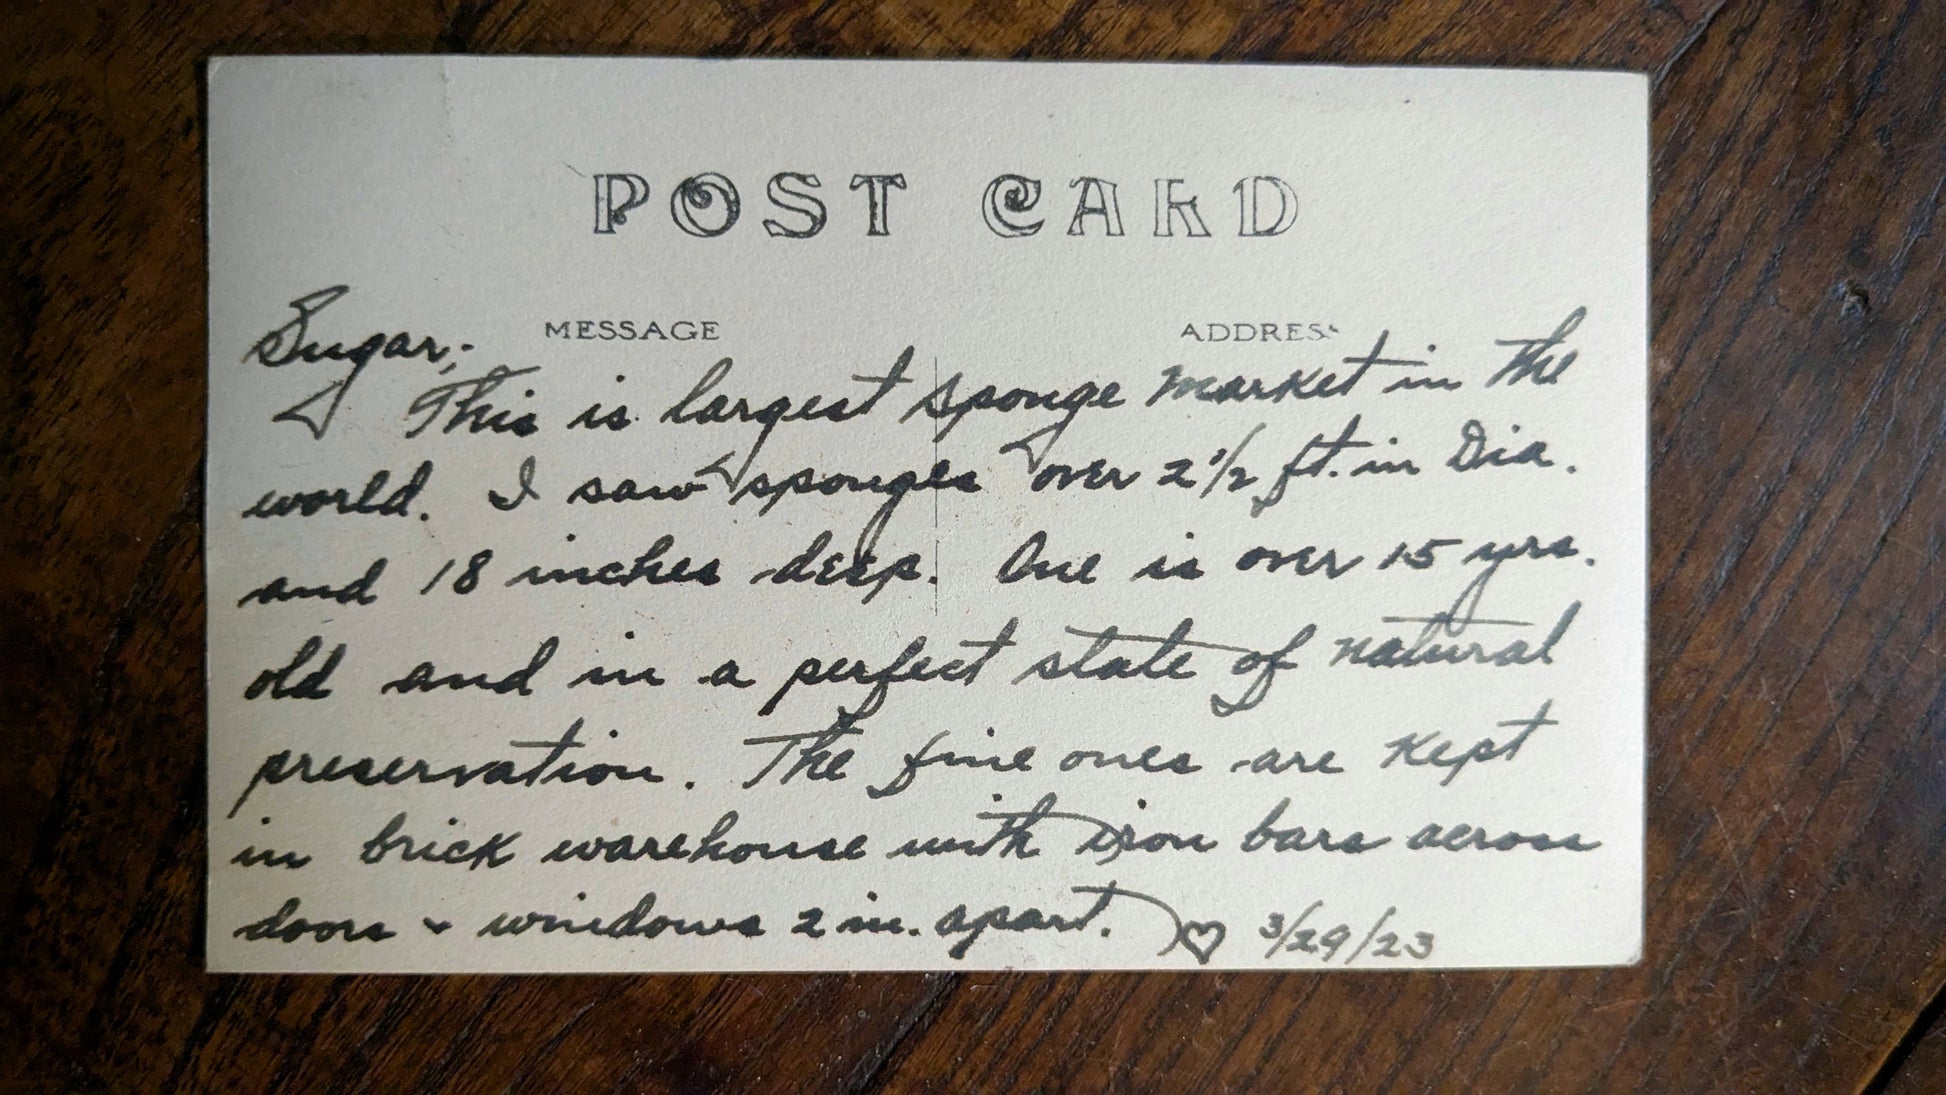 POST CARD
MESSAGE
ADDRESS
Sugar;
This is largest sponge market in the
world. I saw sponges over 2 1/2 ft. in Dia.
and 18 inches deep. One is over 15 yrs.
old and in a perfect state of natural
preservation. The fine ones are kept
in brick warehouse with iron bars across
doors & windows 2 in. apart. ♡ 3/29/23